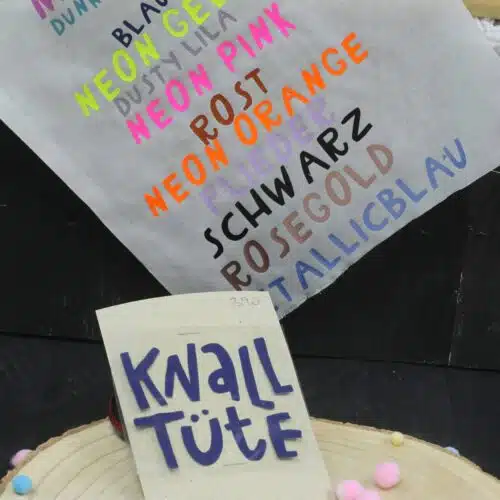 BLAU
NEON GELB
DUSTY LILA
NEON PINK
ROST
NEON ORANGE
FLIEDER
SCHWARZ
ROSEGOLD
TALLICBLAU
KNALL
TÜTE